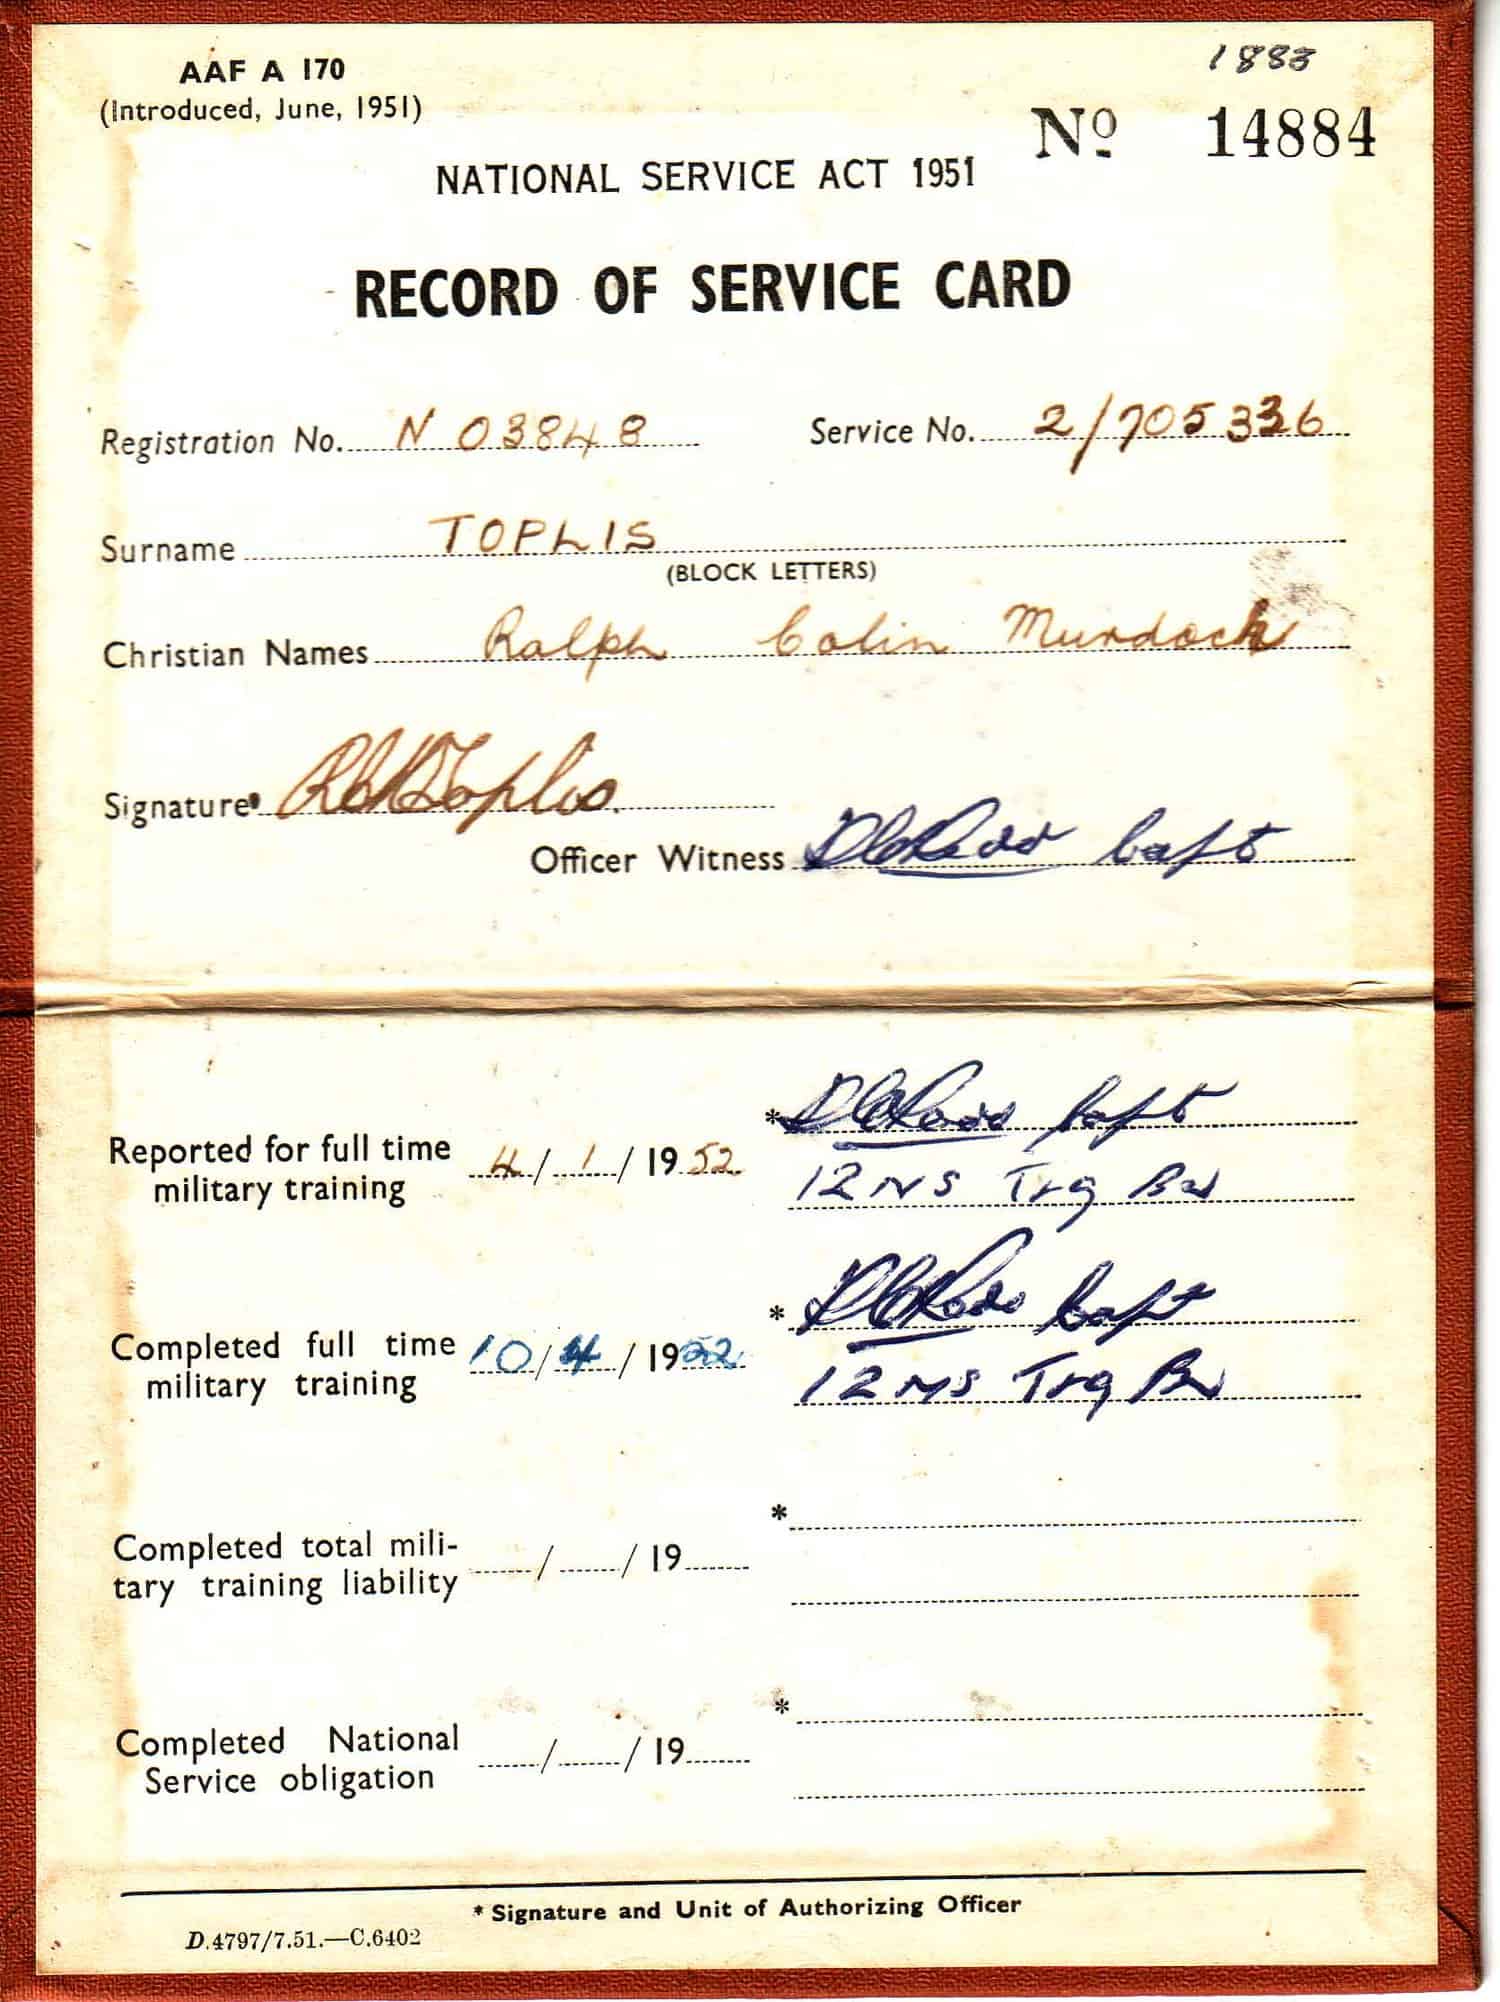 AAF A 170
(Introduced, June, 1951)
1883
No 14884
NATIONAL SERVICE ACT 1951
RECORD OF SERVICE CARD
Registration No. N 03848 Service No. 2/705336
Surname TOPLIS
(BLOCK LETTERS)
Christian Names Ralph Colin Murdoch
Signature Toplis
Officer Witness Capt
Capt
Reported for full time
military training 4/1/1952
12 NS Trg Bn
Capt
Completed full time
military training 10/4/1952
12 NS Trg Bn
*
Completed total mili-
tary training liability / / 19
*
Completed National
Service obligation / / 19
* Signature and Unit of Authorizing Officer
D.4797/7.51.—C.6402